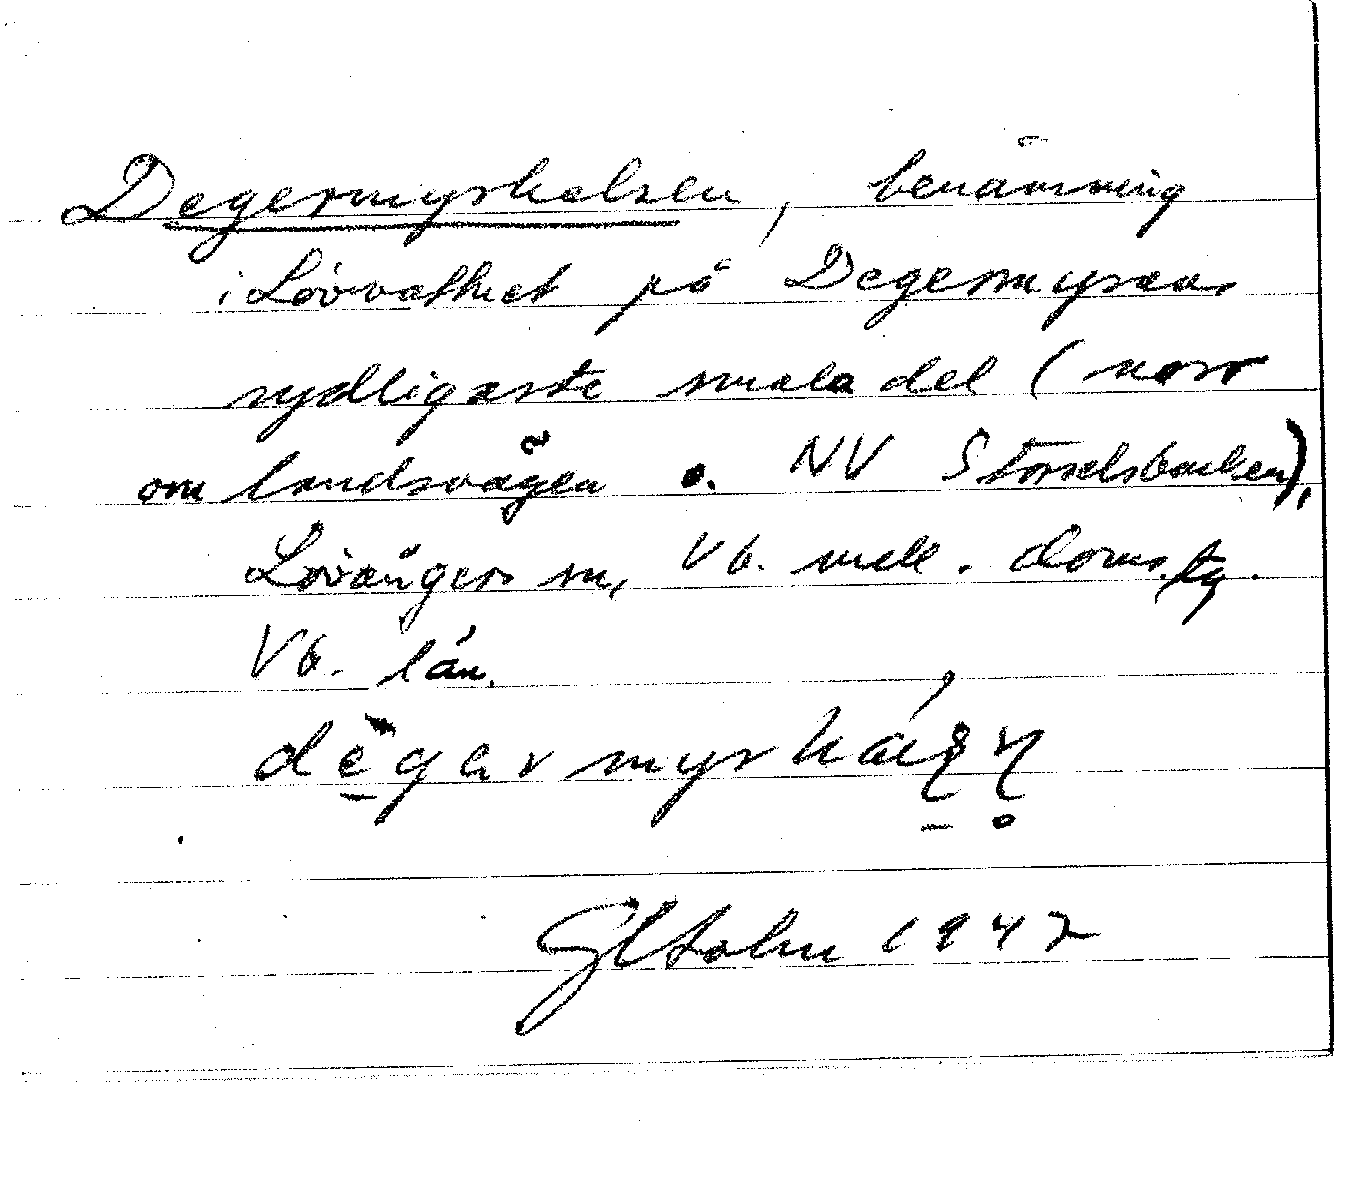 Degermyrhalsen, benämning
i Lövvattnet på Degermyrans
sydligaste smala del (norr
om landsvägen o. NV Storselsbacken),
Lövångers sn, Vb. mell. doms. tg.
Vb. län.
1947